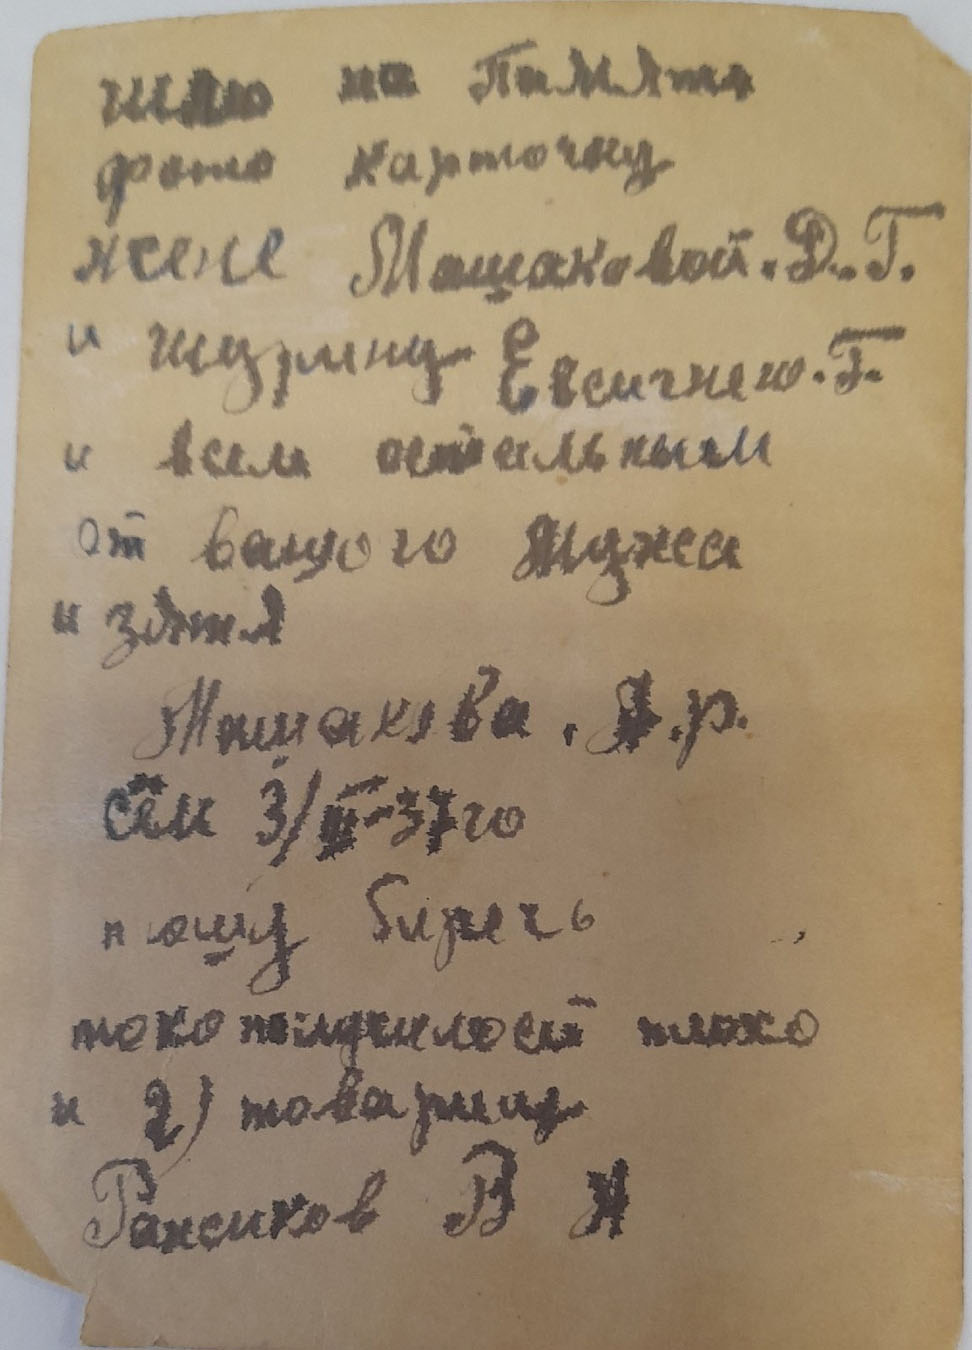 шлю на Память
фото карточку
жене Машаковой. Д. Г.
и шурину Евсигнею. Г.
и всем остальным
от вашого Мужа
и зятя
Машакова. Я. р.
сем 3/II-37го
прошу беречь
токо получилось плохо
и 2) товарищ
Рансиков В И